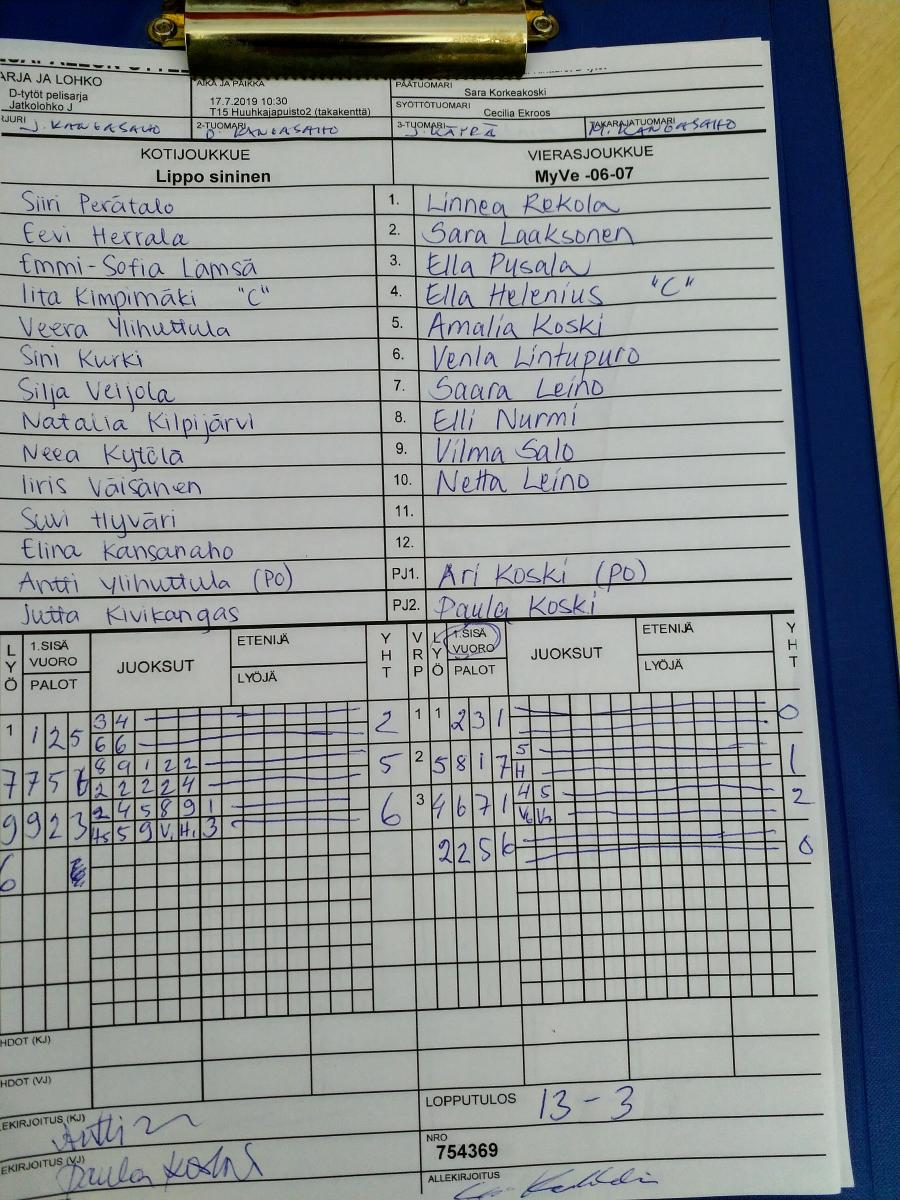 ARJA JA LOHKO
D-tytöt pelisarja
Jatkolohko J
AIKA JA PAIKKA
17.7.2019 10:30
T15 Huuhkajapuisto2 (takakenttä)
PÄÄTUOMARI
Sara Korkeakoski
SYÖTTÖTUOMARI
Cecilia Ekroos
RJURI J. KANGASAHO
2-TUOMARI KANGASAHO
3-TUOMARI J. KÄTKÄ
TAKARAJATUOMARI M. KANGASAHO
KOTIJOUKKUE VIERASJOUKKUE
Lippo sininen MyVe -06-07
Siiri Perätalo 1. Linnea Rekola
Eevi Herrala 2. Sara Laaksonen
Emmi-Sofia Lämsä 3. Ella Pusala
Iita Kimpimäki "C" 4. Ella Helenius "C"
Veera Ylihuttula 5. Amalia Koski
Sini Kurki 6. Venla Lintupuro
Silja Veijola 7. Saara Leino
Natalia Kilpijärvi 8. Elli Nurmi
Neea Kytölä 9. Vilma Salo
Iiris Väisänen 10. Netta Leino
Suvi Hyväri 11.
Elina Kansanaho 12.
Antti Ylihuttula (PO) PJ1. Ari Koski (PO)
Jutta Kivikangas PJ2. Paula Koski
LYÖ 1.SISÄ VUORO PALOT JUOKSUT ETENIJÄ LYÖJÄ YHT VRP LYÖ 1.SISÄ VUORO PALOT JUOKSUT ETENIJÄ LYÖJÄ YHT
1 1 2 5 3 4 2 1 1 2 3 1 0
6 6
7 7 5 6 8 9 1 2 2 5 2 5 8 1 7 5 1
2 2 2 2 4 H
9 9 2 3 2 4 5 8 9 1 6 3 4 6 7 1 4 5 2
H5 5 9 V1 H1 3
6 2 2 5 6 0
HDOT (KJ)
HDOT (VJ)
EKIRJOITUS (KJ) Antti
LOPPUTULOS 13-3
EKIRJOITUS (VJ) Paula Koski
NRO
754369
ALLEKIRJOITUS